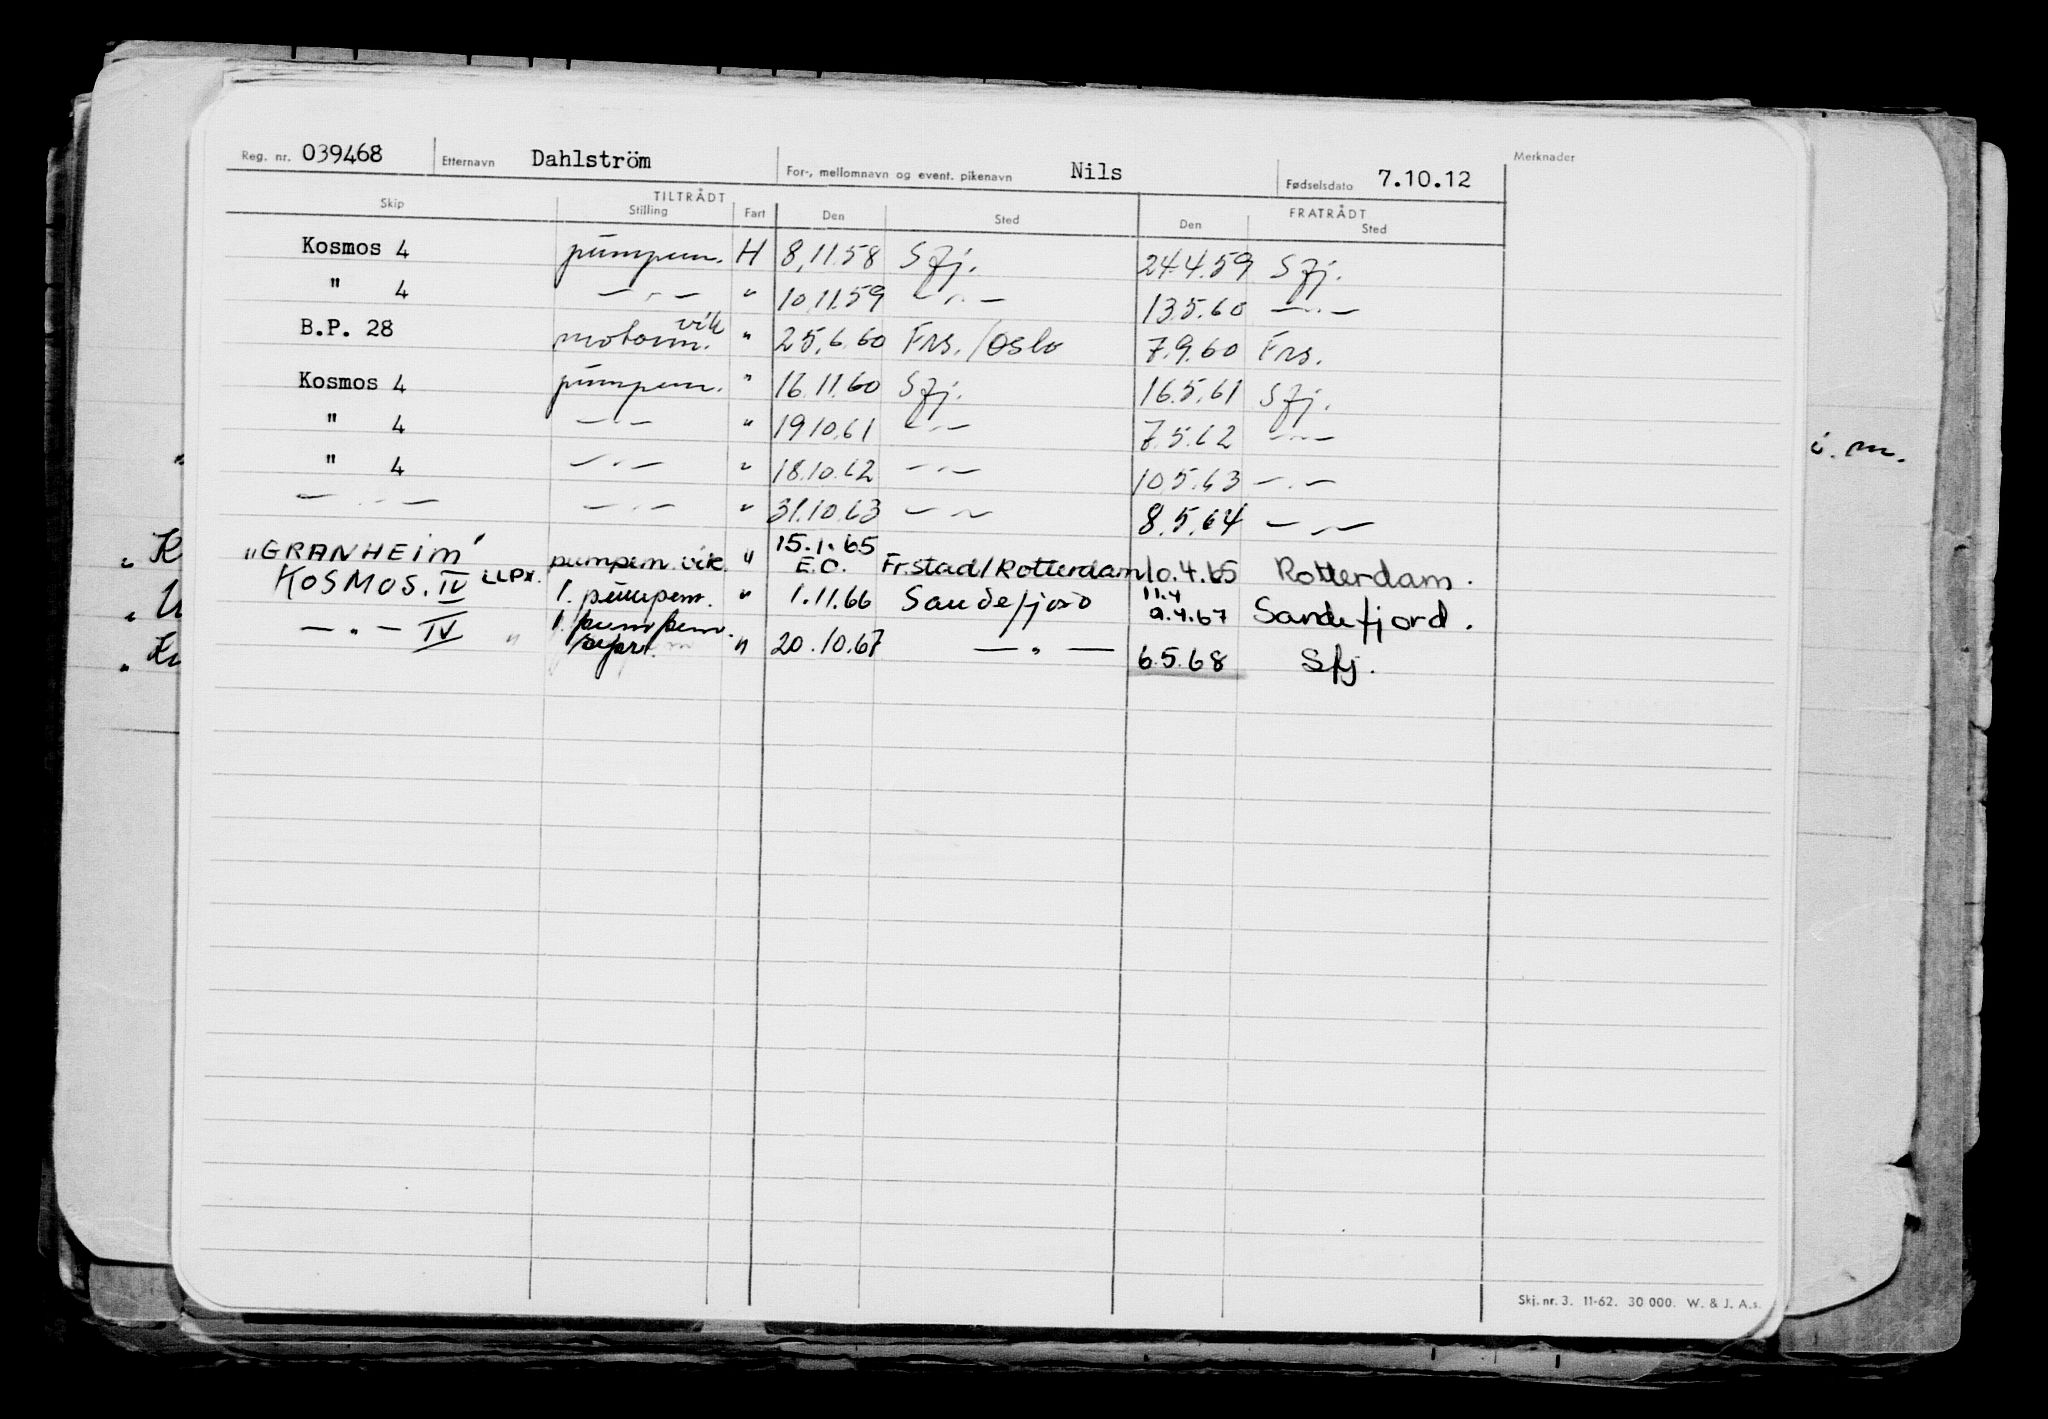 Reg. nr. 039468 Etternavn Dahlström For-, mellomnavn og event. pikenavn Nils Fødselsdato 7.10.12 Merknader
TILTRÅDT FRATRÅDT
Skip Stilling Fart Den Sted Den Sted
Kosmos 4 pumpem. H 8.11.58 Sfj. 24.4.59 Sfj.
" 4 — " — " 10.11.59 — " — 13.5.60 — " —
B.P. 28 motorm. vik " 25.6.60 Frs./Oslo 7.9.60 Frs.
Kosmos 4 pumpem. " 16.11.60 Sfj. 16.5.61 Sfj.
" 4 — " — " 19.10.61 — " — 7.5.62 — " —
" 4 — " — " 18.10.62 — " — 10.5.63 — " —
— " — — " — " 31.10.63 — " — 8.5.64 — " —
"GRANHEIM" pumpem. vik. " 15.1.65 E.O. Fr.stad/Rotterdam 10.4.65 Rotterdam.
KOSMOS. IV LLPX. 1. pumpem. " 1.11.66 Sandefjord 11.4 9.4.67 Sandefjord.
— " — IV " 1. pumpem. " 20.10.67 — " — 6.5.68 Sfj.
i. m.
Skj. nr. 3. 11-62. 30 000. W. & J. A.s.